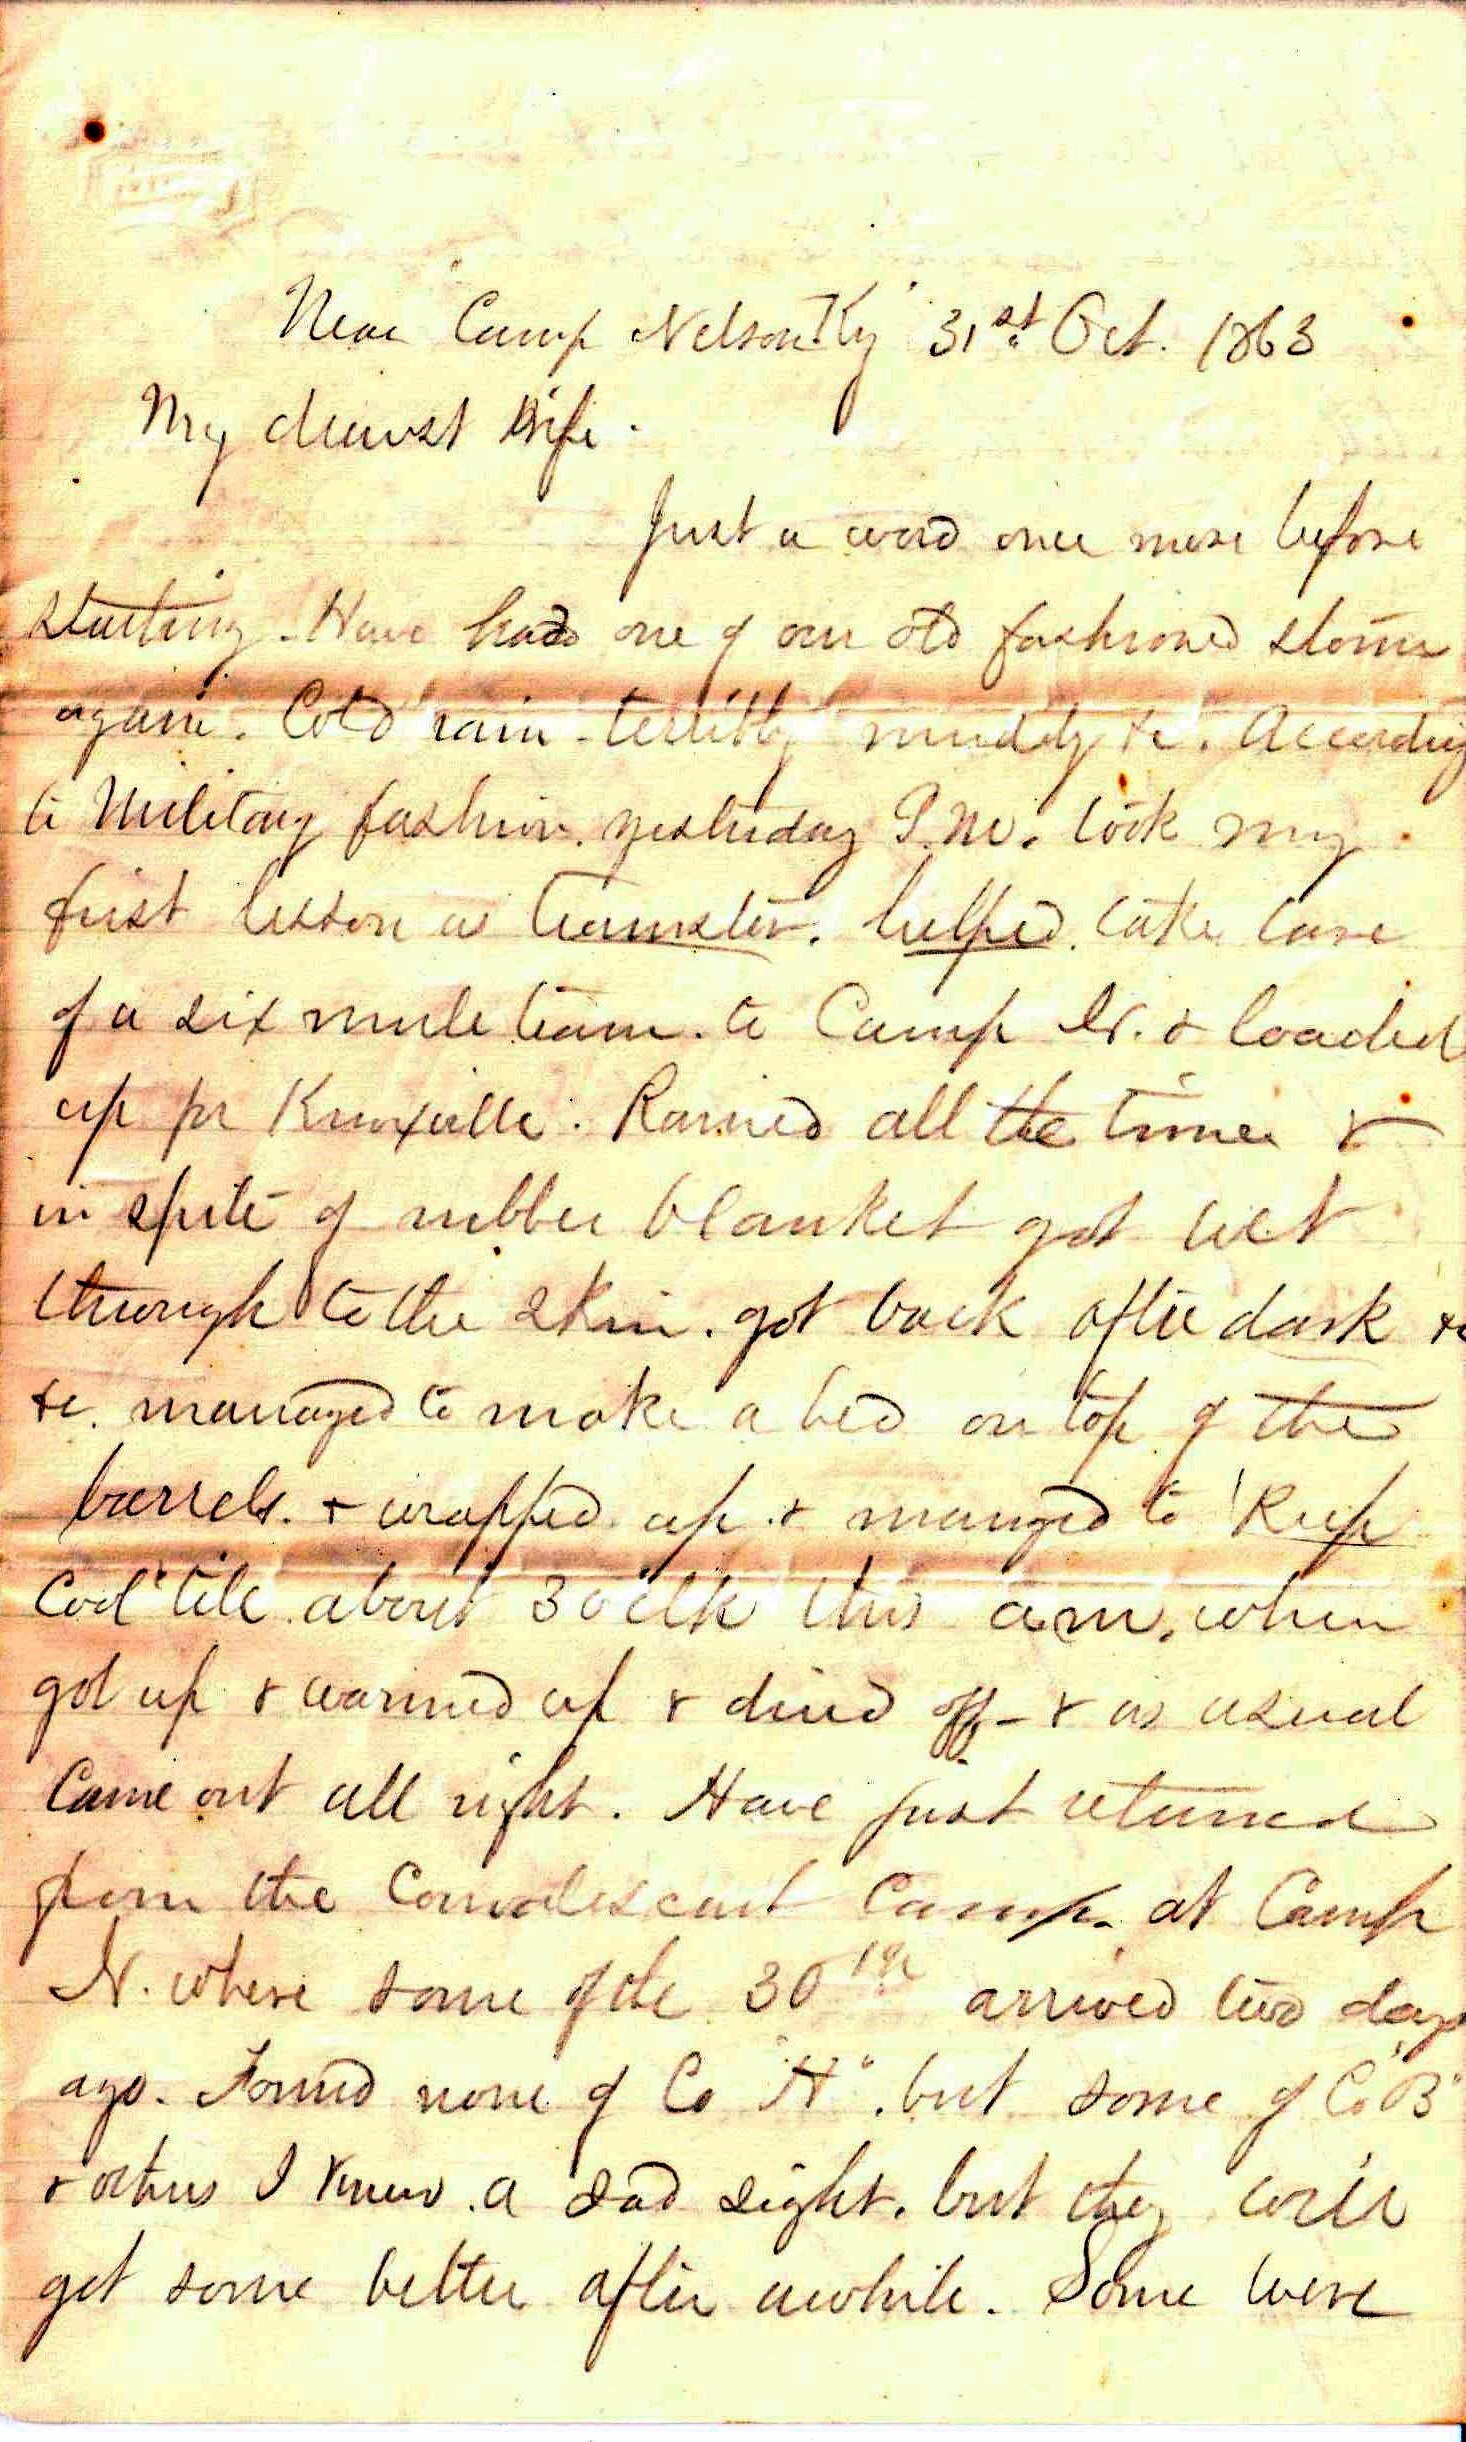 Near Camp Nelson Ky 31st Oct. 1863
My dearest Wife.
Just a word once more before
starting. Have had one of our old fashioned storms
again. Cold rain - terribly muddy &c. According
to Military fashion. yesterday P.M. took my
first lesson as teamster. helped take care
of a six mule team. to Camp N. & loaded
up for Knoxville. Rained all the time &
in spite of rubber blanket got wet
through to the skin. got back after dark &c
&c. managed to make a bed on top of the
barrels. & wrapped up & manged to "Keep
Cool" till about 3 oclk this am. when
got up & warmed up & dried off - & as usual
Came out all right. Have just returned
from the Convalescent Camp. at Camp
N. where some of the 30th arrived two days
ago. Found none of Co "H". but some of Co "B"
& others I knew. a sad sight. but they will
get some better after awhile. Some were